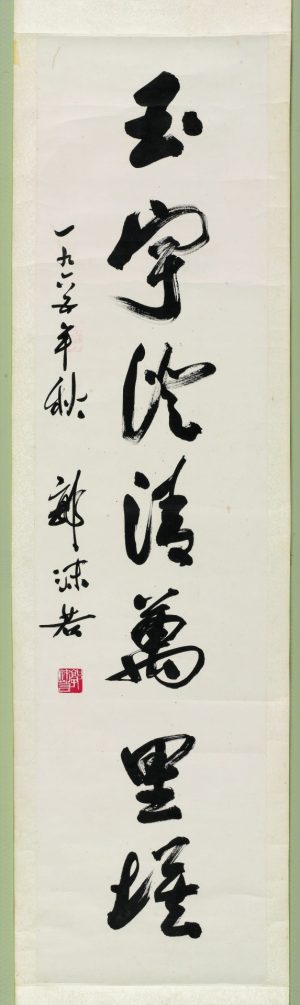 玉宇澄清萬里埃
一九六五年秋 郭沫若